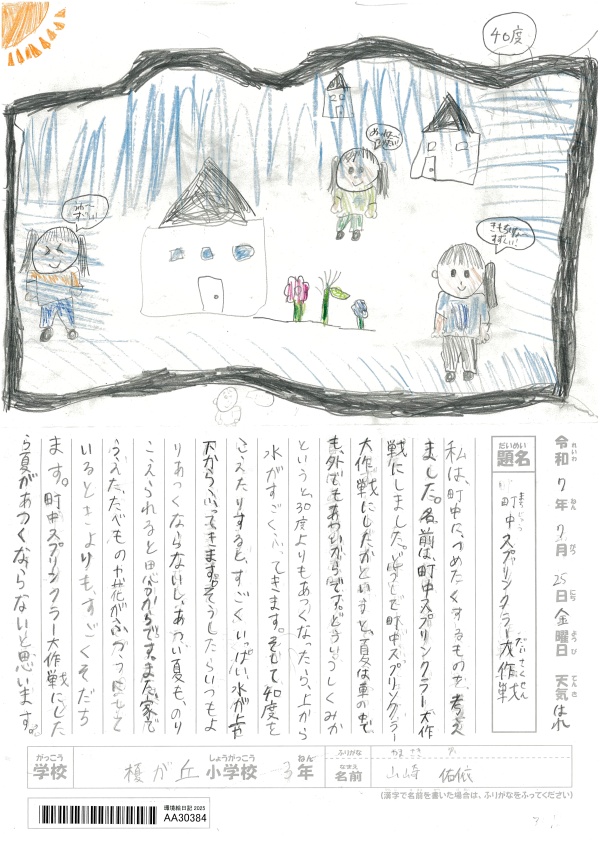 40度
みず〜
すずしい!
きもちいい〜
すずしい!
令和7年7月25日金曜日 天気はれ
れいわ ねん がつ にち ようび てんき
だいめい
題名
町中スプリンクラー大作戦
まちじゅう だいさくせん
私は、町中に、つめたくするものを、考え
ました。名前は、町中スプリンクラー大作
戦にしました。どうして町中スプリンクラー
大作戦にしたかというと、夏は車の中で
も、外でもあついからです。どういうしくみか
というと、30度よりもあつくなったら、上から
水がすごくふってきます。そして40度を
こえたりすると、すごくいっぱい水が上や
下からふってきます。そうしたらいつもよ
りあつくならないし、あつい夏も、のり
こえられると思うからです。また、家で
うえた、たべものや花がふつうにして
いるときよりも、すごくそだち
ます。町中スプリンクラー大作戦にした
ら夏があつくならないと思います。
がっこう
学校
榎が丘小学校 3年
しょうがっこう ねん
ふりがな
やま さき
なまえ
名前
山崎 佑依
(漢字で名前を書いた場合は、ふりがなをふってください)
環境絵日記2025
AA30384